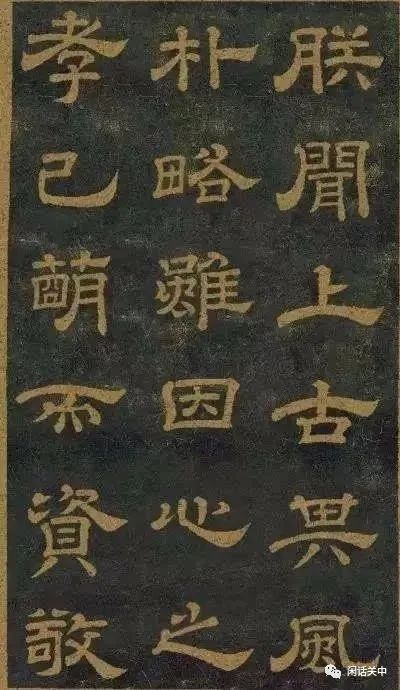 朕聞上古其風
朴略雖因心之
孝已萌而資敬
闲话关中